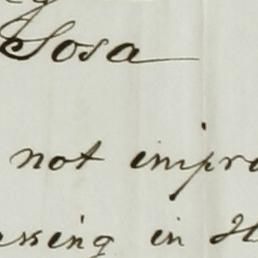 Sosa
not impro
assing in